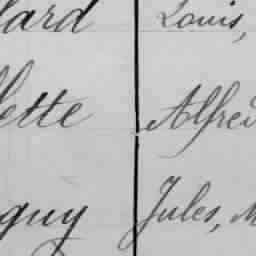 lard Louis,
lette Alfred
guy Jules, M